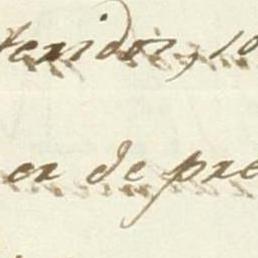 tenidos, 10
er de pre